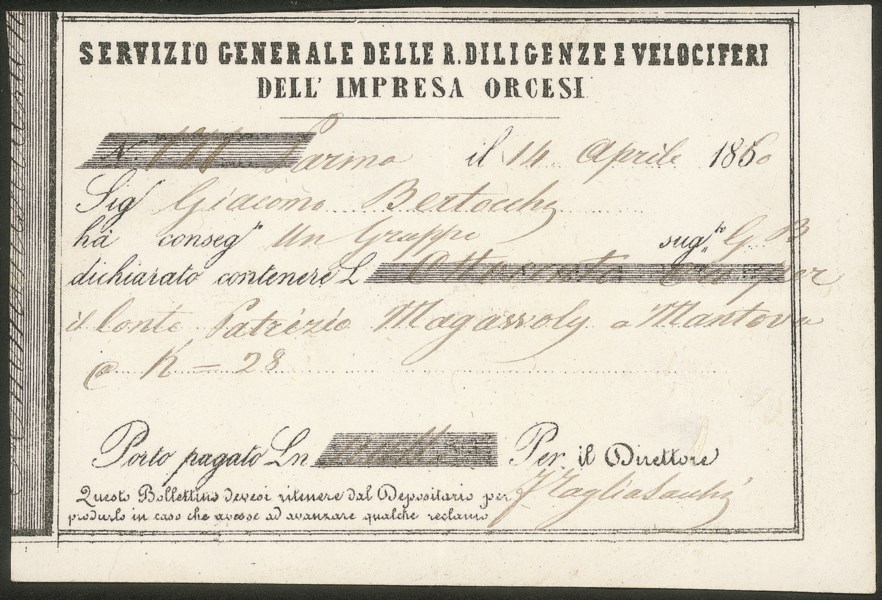 SERVIZIO GENERALE DELLE R. DILIGENZE E VELOCIFERI
DELL' IMPRESA ORCESI
N. Parma il 14 Aprile 1860
Sigr Giacomo Bertocchi
ha consegto Un Gruppo sugto G B
dichiarato contenere L Ottocento per
il Conte Patrizio Magawoly a Mantova
K = 28
Porto pagato Ln Per il Direttore
Questo Bollettino devesi ritenere dal Depositario per
produrlo in caso che avesse ad avanzare qualche reclamo